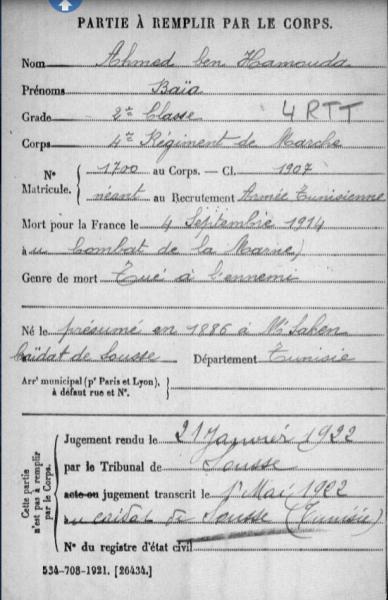 PARTIE À REMPLIR PAR LE CORPS.
Nom Ahmed ben Hamouda
Prénoms Baïa
Grade 2e Classe 4 RTT
Corps 4e Régiment de Marche
N° Matricule. { 1700 au Corps. — Cl. 1907
néant au Recrutement Armée Tunisienne
Mort pour la France le 4 Septembre 1914
à u Combat de la Marne)
Genre de mort Tué à l'ennemi
Né le présumé en 1886 à M'Saken
Caïdat de Sousse Département Tunisie
Arrt municipal (pr Paris et Lyon), à défaut rue et N°. {
Cette partie n'est pas à remplir par le Corps.
Jugement rendu le 21 Janvier 1922
par le Tribunal de Sousse
acte ou jugement transcrit le 1er Mai 1922
au caïdat de Sousse (Tunisie)
N° du registre d'état civil
534-708-1921. [26434.]